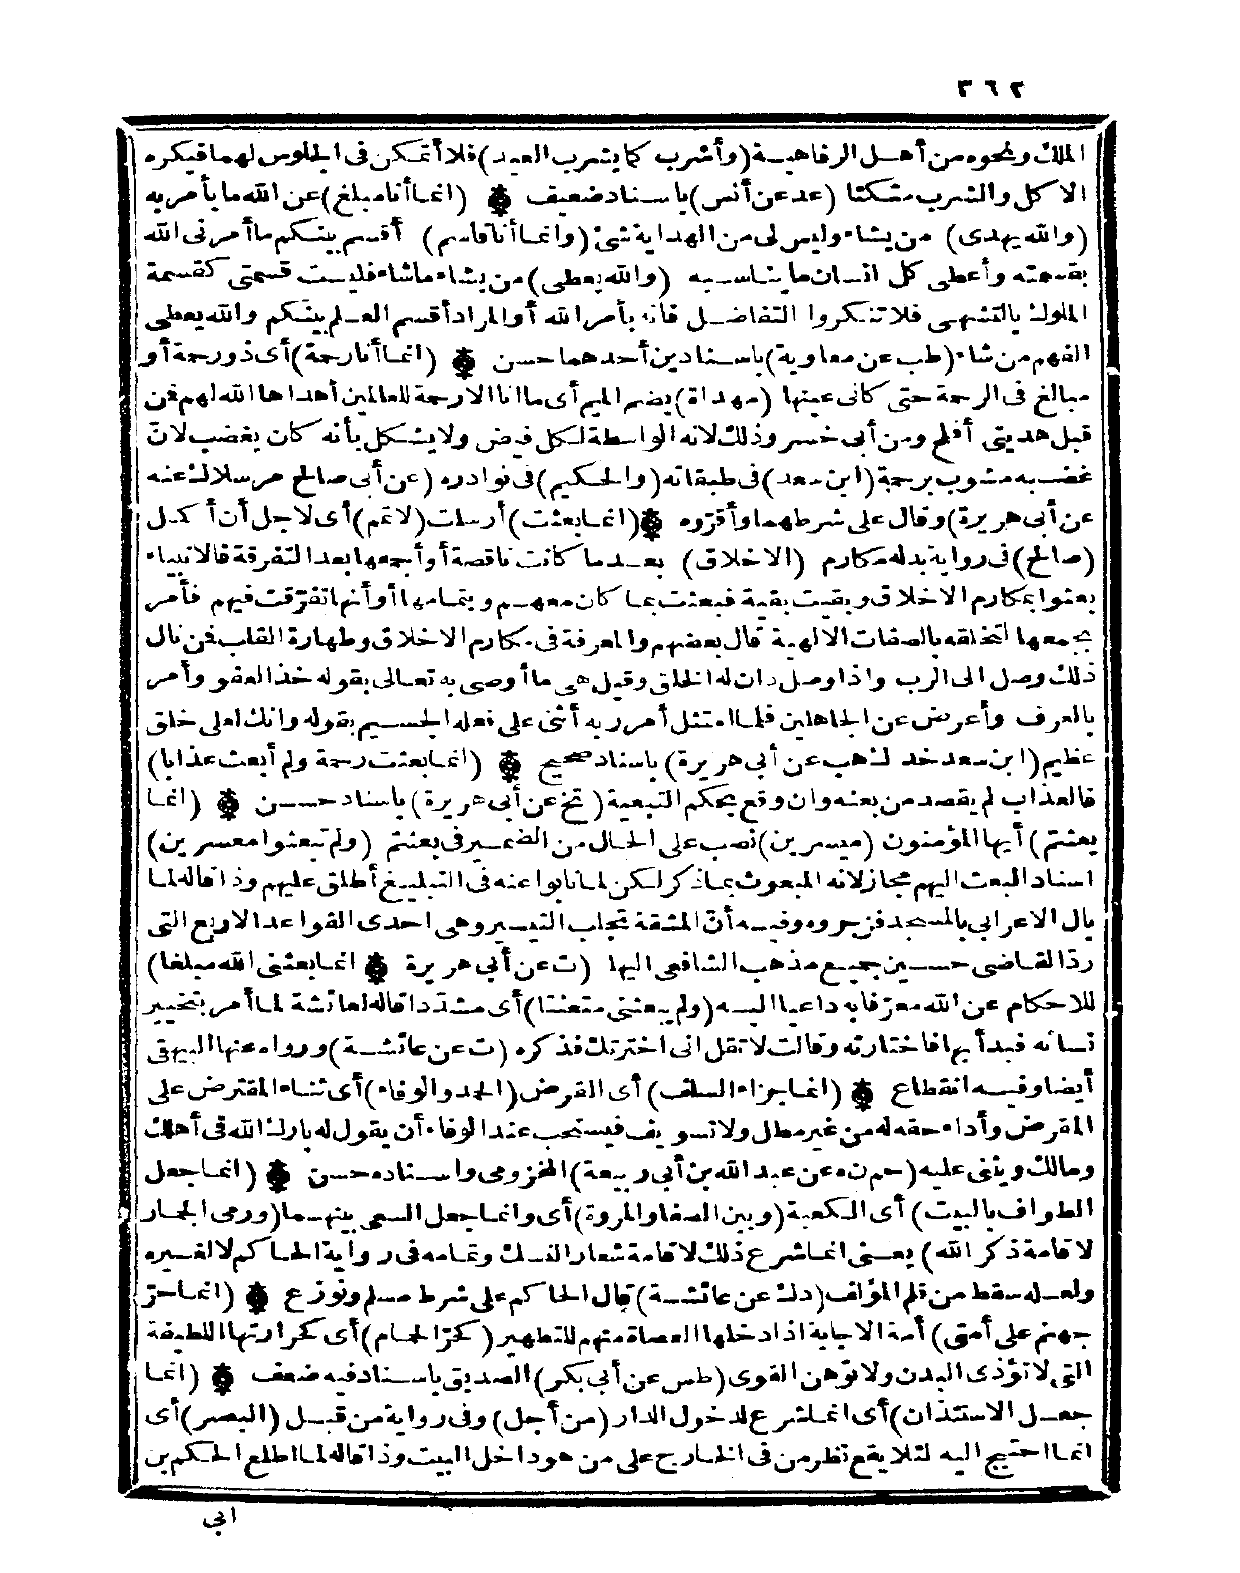 ٣٦٢
الملك ونحوه من أهل الرفاهية (وأشرب كما يشرب العبد) فلا أتمكن في الجلوس لهما فيكره
الاكل والشرب متكئا (عد عن أنس) باسناد ضعيف ۞ (انما أنا مبلغ) عن الله ما يأمر به
(والله يهدى) من يشاء وليس لى من الهداية شئ (وانما أنا قاسم) أقسم بينكم ما أمرنى الله
بقسمته وأعطى كل انسان ما يناسبه (والله يعطى) من يشاء ما شاء فليست قسمتى كقسمة
الملوك بالتشهى فلا تنكروا التفاضل فانه بأمر الله أو المراد أقسم العلم بينكم والله يعطى
الفهم من شاء (طب عن معاوية) باسنادين أحدهما حسن ۞ (انما أنا رحمة) أى ذو رحمة أو
مبالغ فى الرحمة حتى كأنى عينها (مهداة) بضم الميم أى ما أنا الا رحمة للعالمين أهداها الله لهم فمن
قبل هديتى أفلح ومن أبى خسر وذلك لانه الواسطة لكل فيض ولا يشكل بأنه كان يغضب لانّ
غضبه مشوب برحمة (ابن سعد) فى طبقاته (والحكيم) فى نوادره (عن أبى صالح مرسلا ك عنه
عن أبى هريرة) وقال على شرطهما وأقرّوه ۞ (انما بعثت) أرسلت (لاتمم) أى لاجل أن أكمل
(صالح) فى رواية بدله مكارم (الاخلاق) بعد ما كانت ناقصة أو أجمعها بعد التفرقة فالانبياء
بعثوا بمكارم الاخلاق وبقيت بقية فبعثت بما كان معهم وبتمامها أو أنها تفرّقت فيهم فأمر
بجمعها لتخلقه بالصفات الالهية قال بعضهم والمعرفة فى مكارم الاخلاق وطهارة القلب فمن نال
ذلك وصل الى الرب واذا وصل دان له الخلق وقيل هى ما أوصى به تعالى بقوله خذ العفو وأمر
بالعرف وأعرض عن الجاهلين فلما امتثل أمر ربه أثنى على فعله الجسيم بقوله وانك لعلى خلق
عظيم (ابن سعد خد ك هب عن أبى هريرة) باسناد صحيح ۞ (انما بعثت رحمة ولم أبعث عذابا)
فالعذاب لم يقصد من بعثه وان وقع بحكم التبعية (تخ عن أبى هريرة) باسناد حسن ۞ (انما
بعثتم) أيها المؤمنون (ميسرين) نصب على الحال من الضمير فى بعثتم (ولم تبعثوا معسرين)
اسناد البعث اليهم مجاز لانه المبعوث بما ذكر لكن لما نابوا عنه فى التبليغ أطلق عليهم وذا قاله لما
بال الاعرابى بالمسجد فزجروه وفيه أنّ المشقة تجلب التيسير وهى احدى القواعد الاربع التى
ردّ القاضى حسين جميع مذهب الشافعى اليها (ت عن أبى هريرة ۞ انما بعثنى الله مبلغا)
للاحكام عن الله معرّفا به داعيا اليه (ولم يبعثنى متعنتا) أى مشدّدا قاله لعائشة لما أمر بتخيير
نسائه فبدأ بها فاختارته وقالت لا تقل انى اخترتك فذكره (ت عن عائشة) ورواه عنها البيهقى
أيضا وفيه انقطاع ۞ (انما جزاء السلف) أى القرض (الحمد والوفاء) أى ثناء المقترض على
المقرض وأداء حقه له من غير مطل ولا تسويف فيستحب عند الوفاء أن يقول له بارك الله فى أهلك
ومالك ويثنى عليه (حم ن ه عن عبد الله بن أبى ربيعة) المخزومى واسناده حسن ۞ (انما جعل
الطواف بالبيت) أى الكعبة (وبين الصفا والمروة) أى وانما جعل السعى بينهما (ورمى الجمار
لاقامة ذكر الله) يعنى انما شرع ذلك لاقامة شعار النسك وتمامه فى رواية الحاكم لا لغيره
ولعله سقط من قلم المؤلف (د ك عن عائشة) قال الحاكم على شرط مسلم ونوزع ۞ (انما حرّ
جهنم على أمتى) أمة الاجابة اذا دخلها العصاة منهم للتطهير (كحرّ الحمام) أى كحرارتها اللطيفة
التى لا تؤذى البدن ولا توهن القوى (طس عن أبى بكر) الصديق باسناد فيه ضعف ۞ (انما
جعل الاستئذان) أى انما شرع لدخول الدار (من أجل) وفى رواية من قبل (البصر) أى
انما احتيج اليه لئلا يقع نظر من فى الخارج على من هو داخل البيت وذا قاله لما اطلع الحكم بن
ابى